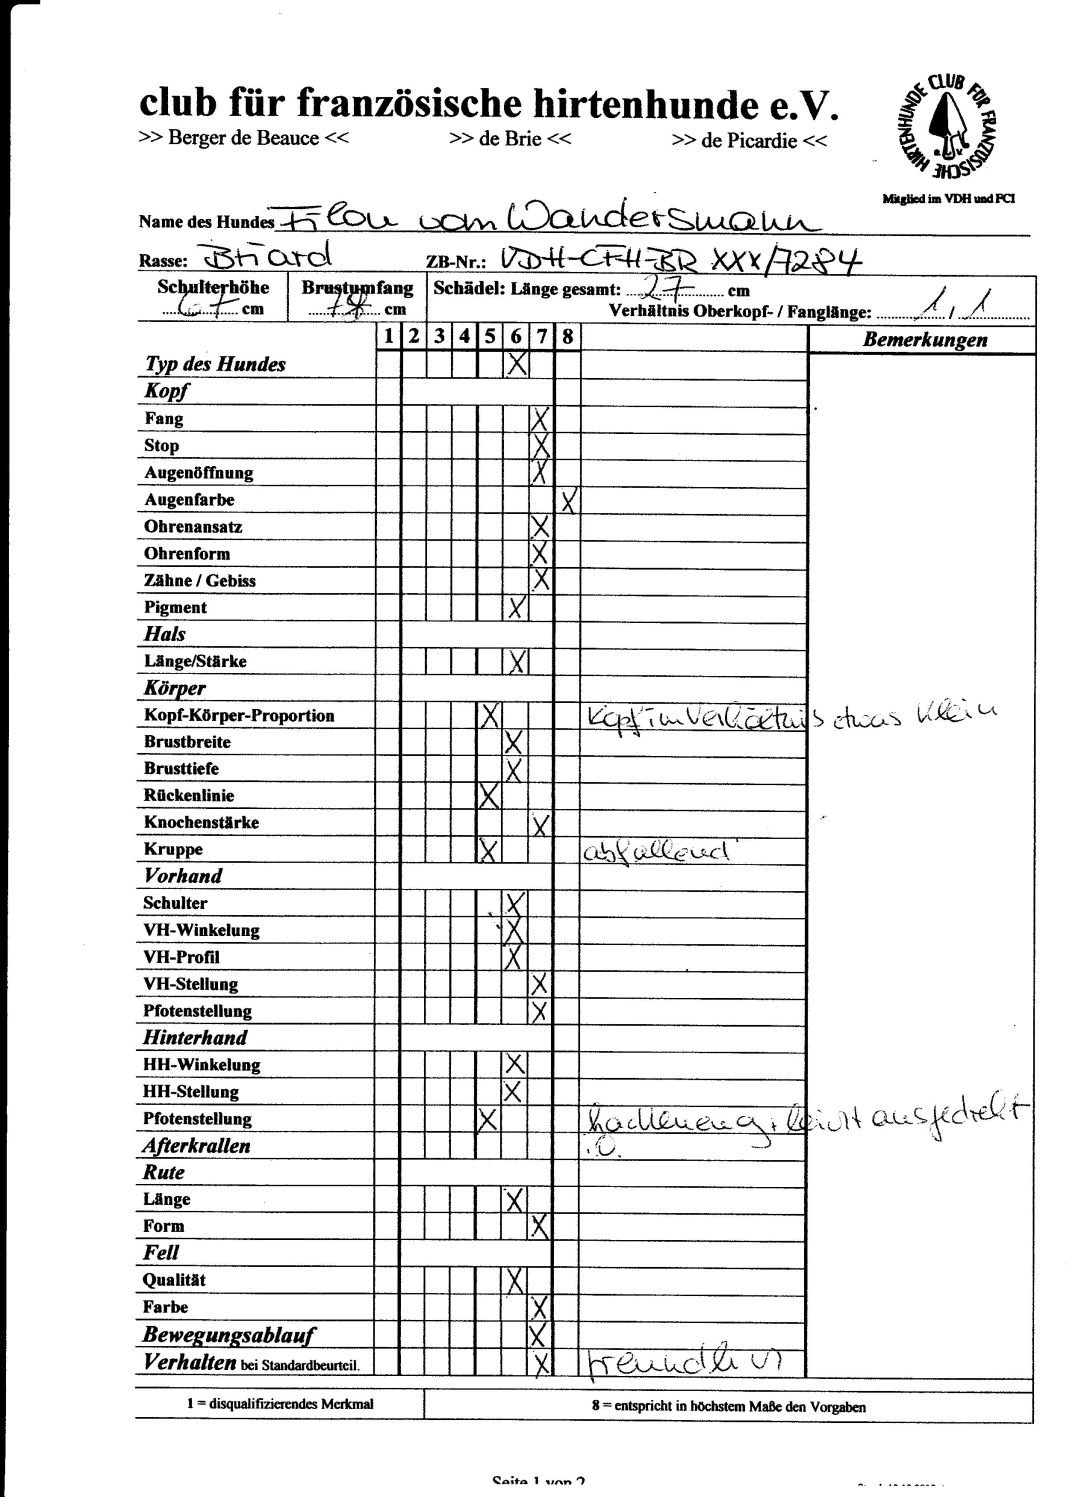 club für französische hirtenhunde e.V.
>> Berger de Beauce << >> de Brie << >> de Picardie <<
CLUB FÜR FRANZÖSISCHE HIRTENHUNDE
Mitglied im VDH und FCI
Name des Hundes Filou vom Wandersmann
Rasse: Briard ZB-Nr.: VDH-CFH-BR XXX/7284
Schulterhöhe Brustumfang Schädel: Länge gesamt: 27 cm
67 cm 78 cm Verhältnis Oberkopf- / Fanglänge: 1,1
1 2 3 4 5 6 7 8 Bemerkungen
Typ des Hundes X
Kopf
Fang X
Stop X
Augenöffnung X
Augenfarbe X
Ohrenansatz X
Ohrenform X
Zähne / Gebiss X
Pigment X
Hals
Länge/Stärke X
Körper
Kopf-Körper-Proportion X Kopf im Verhältnis etwas klein
Brustbreite X
Brusttiefe X
Rückenlinie X
Knochenstärke X
Kruppe X abfallend
Vorhand
Schulter X
VH-Winkelung X
VH-Profil X
VH-Stellung X
Pfotenstellung X
Hinterhand
HH-Winkelung X
HH-Stellung X
Pfotenstellung X hackeneng, leicht ausgedreht
Afterkrallen i.O.
Rute
Länge X
Form X
Fell
Qualität X
Farbe X
Bewegungsablauf X
Verhalten bei Standardbeurteil. X freundlich
1 = disqualifizierendes Merkmal 8 = entspricht in höchstem Maße den Vorgaben
Seite 1 von 2